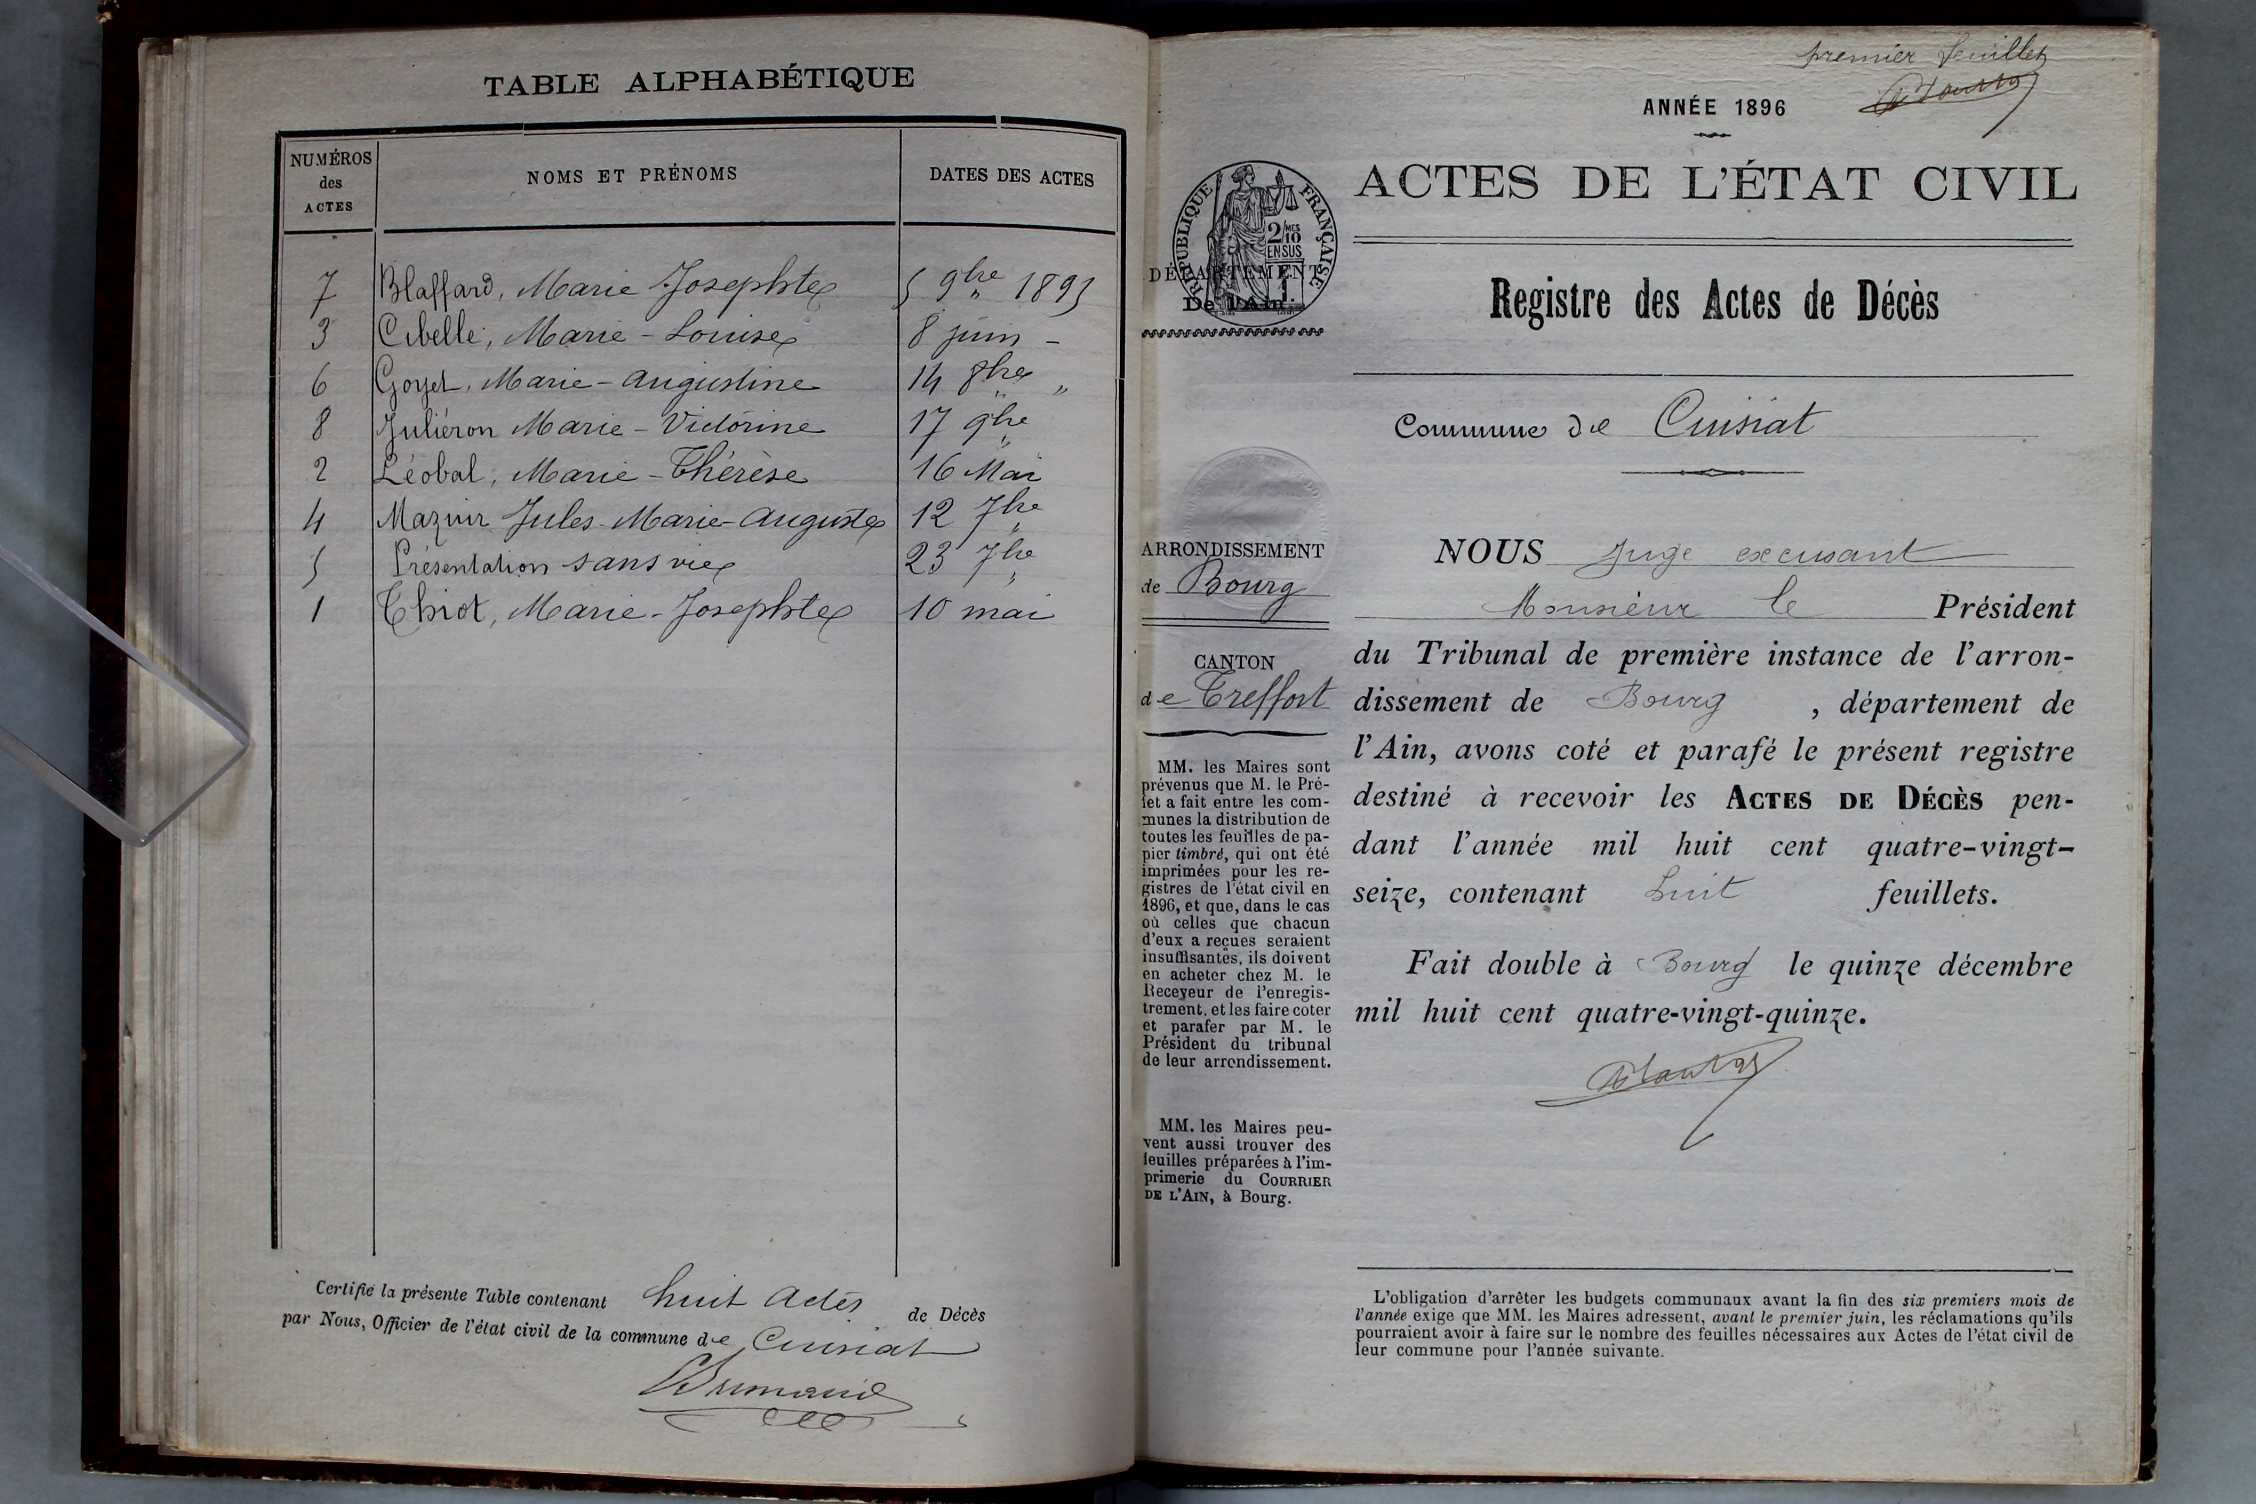 TABLE ALPHABÉTIQUE
NUMÉROS
des
ACTES
NOMS ET PRÉNOMS
DATES DES ACTES
7 Blaffard, Marie Josephte 5 9bre 1895
3 Cibelle, Marie-Louise 8 juin -
6 Goyet, Marie-Augustine 14 8bre "
8 Juliéron Marie-Victorine 17 9bre "
2 Léobal, Marie-Thérèse 16 Mai
4 Mazuir Jules-Marie-Auguste 12 7bre "
5 Présentation sans vie 23 7bre "
1 Thiot, Marie-Josephte 10 mai
Certifié la présente Table contenant huit Actes de Décès
par Nous, Officier de l'état civil de la commune de Cuisiat
premier feuillet
ANNÉE 1896
ACTES DE L'ÉTAT CIVIL
RÉPUBLIQUE FRANÇAISE
2/10 MES
EN SUS
DÉPARTEMENT
De l'Ain.
Registre des Actes de Décès
Commune de Cuisiat
ARRONDISSEMENT
de Bourg
CANTON
de Treffort
MM. les Maires sont
prévenus que M. le Pré-
fet a fait entre les com-
munes la distribution de
toutes les feuilles de pa-
pier timbré, qui ont été
imprimées pour les re-
gistres de l'état civil en
1896, et que, dans le cas
où celles que chacun
d'eux a reçues seraient
insuffisantes, ils doivent
en acheter chez M. le
Receveur de l'enregis-
trement, et les faire coter
et parafer par M. le
Président du tribunal
de leur arrondissement.
MM. les Maires peu-
vent aussi trouver des
feuilles préparées à l'im-
primerie du COURRIER
DE L'AIN, à Bourg.
NOUS Juge excusant
Monsieur le Président
du Tribunal de première instance de l'arron-
dissement de Bourg , département de
l'Ain, avons coté et parafé le présent registre
destiné à recevoir les ACTES DE DÉCÈS pen-
dant l'année mil huit cent quatre-vingt-
seize, contenant huit feuillets.
Fait double à Bourg le quinze décembre
mil huit cent quatre-vingt-quinze.
L'obligation d'arrêter les budgets communaux avant la fin des six premiers mois de
l'année exige que MM. les Maires adressent, avant le premier juin, les réclamations qu'ils
pourraient avoir à faire sur le nombre des feuilles nécessaires aux Actes de l'état civil de
leur commune pour l'année suivante.